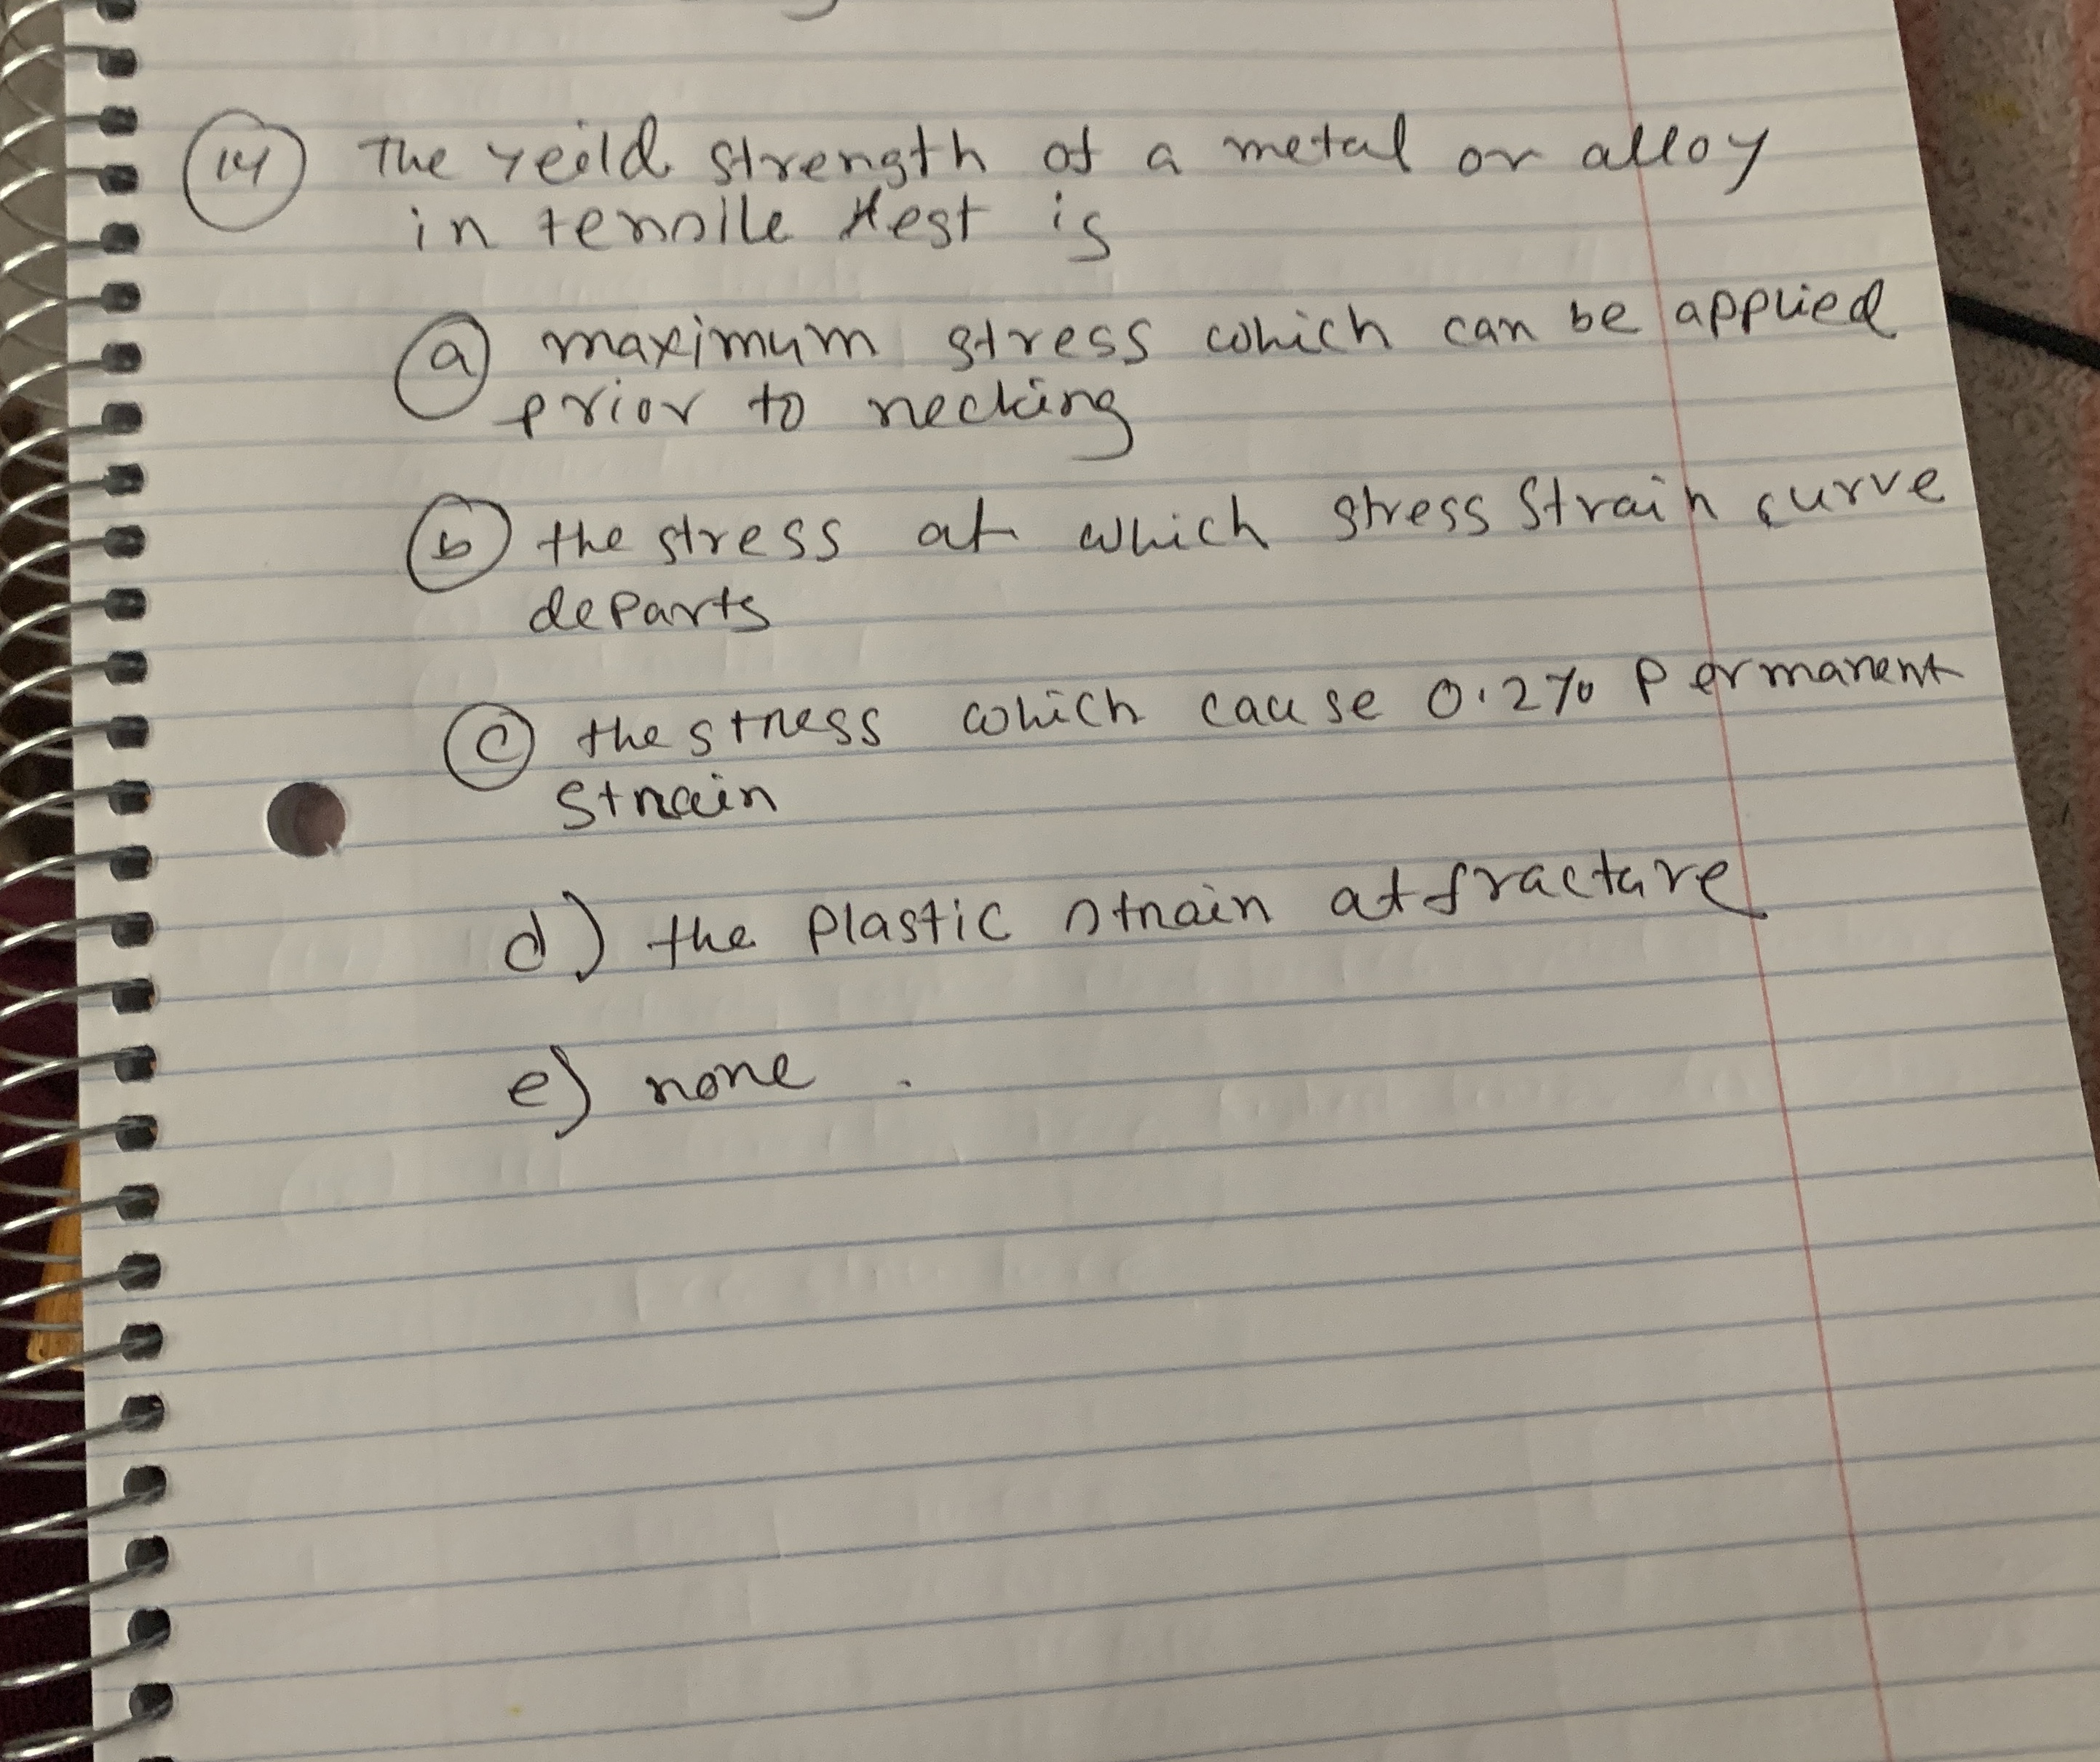 14 The Yeild strength of a metal or alloy
in tensile test is
a maximum stress which can be applied
prior to necking
b the stress at which stress strain curve
departs
c the stress which cause 0.2% permanent
strain
d) the plastic strain at fracture
e) none .